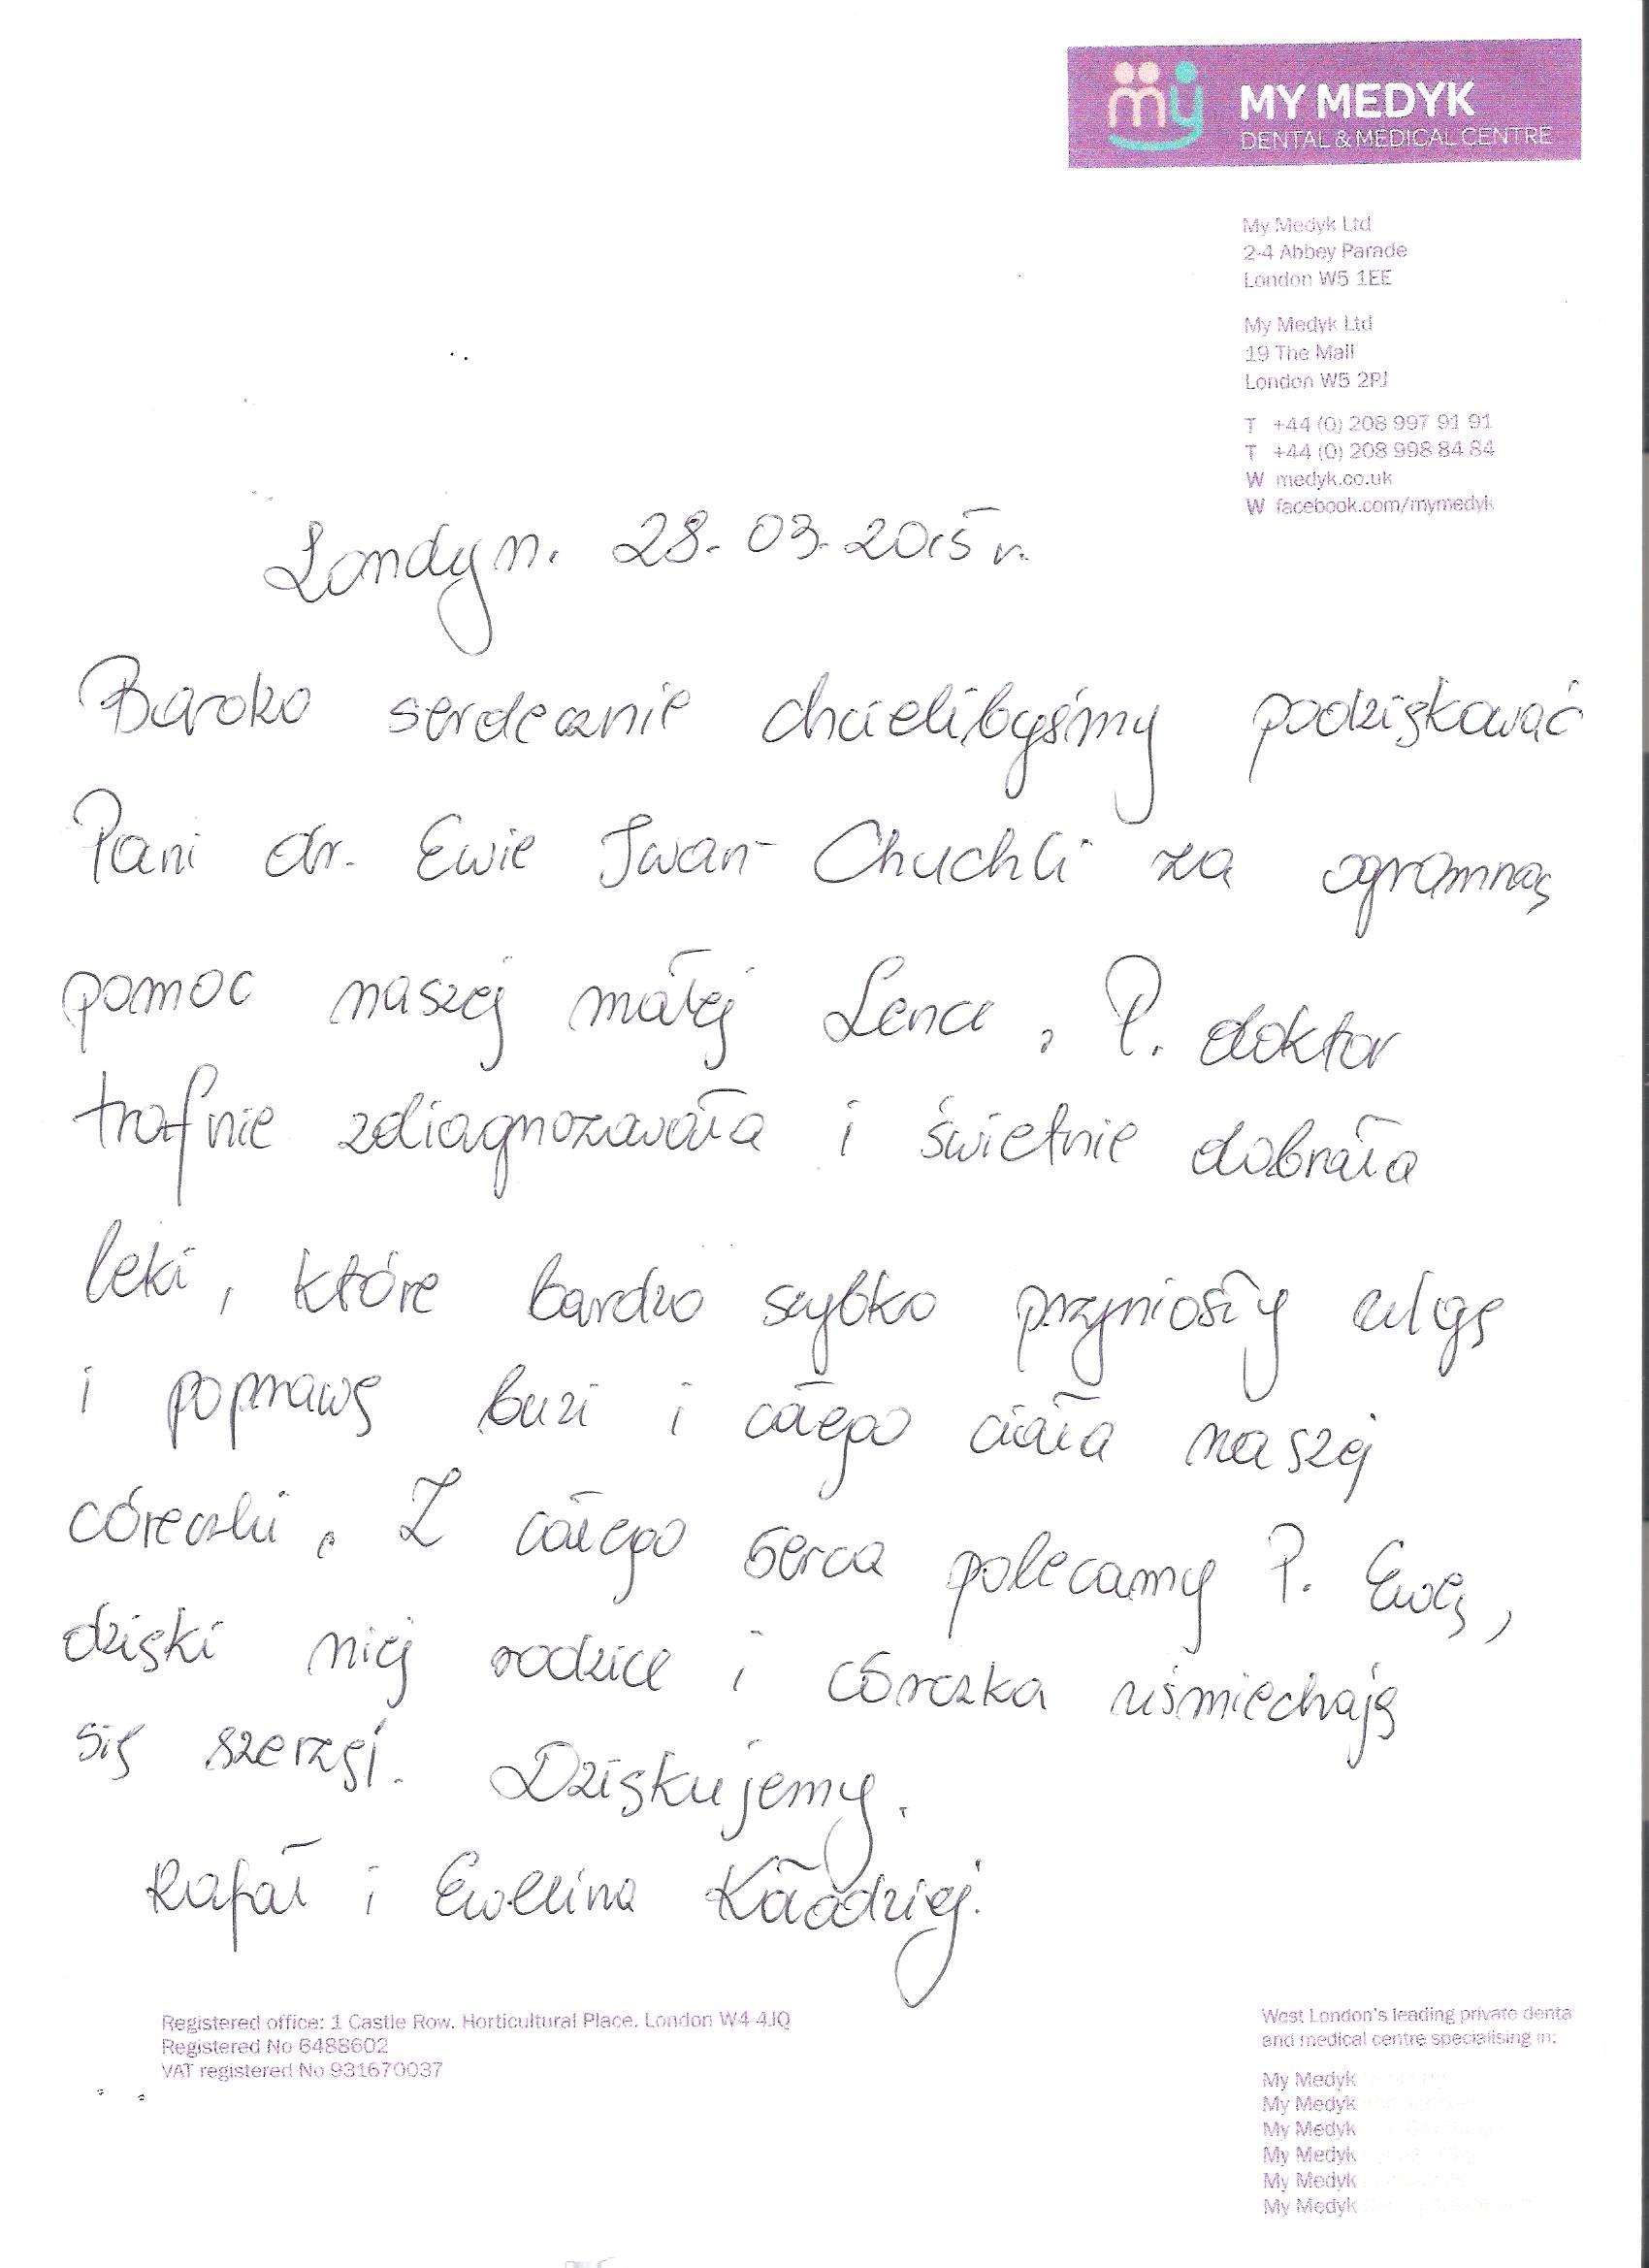 my MY MEDYK
DENTAL & MEDICAL CENTRE
My Medyk Ltd
2-4 Abbey Parade
London W5 1EE
My Medyk Ltd
19 The Mall
London W5 2PJ
T +44 (0) 208 997 91 91
T +44 (0) 208 998 84 84
W medyk.co.uk
W facebook.com/mymedyk
Londyn. 28.03.2015 r.
Bardzo serdecznie chcielibyśmy podziękować
Pani dr. Ewie Iwan-Chuchli za ogromną
pomoc naszej małej Lence. P. doktor
trafnie zdiagnozowała i świetnie dobrała
leki, które bardzo szybko przyniosły ulgę
i poprawę buzi i całego ciała naszej
córeczki. Z całego serca polecamy P. Ewę,
dzięki niej rodzice i córeczka uśmiechają
się szerzej. Dziękujemy.
Rafał i Ewelina Kładziej.
Registered office: 1 Castle Row. Horticultural Place. London W4 4JQ
Registered No 6488602
VAT registered No 931670037
West London's leading private denta
and medical centre specialising in:
My Medyk
My Medyk
My Medyk
My Medyk
My Medyk
My Medyk